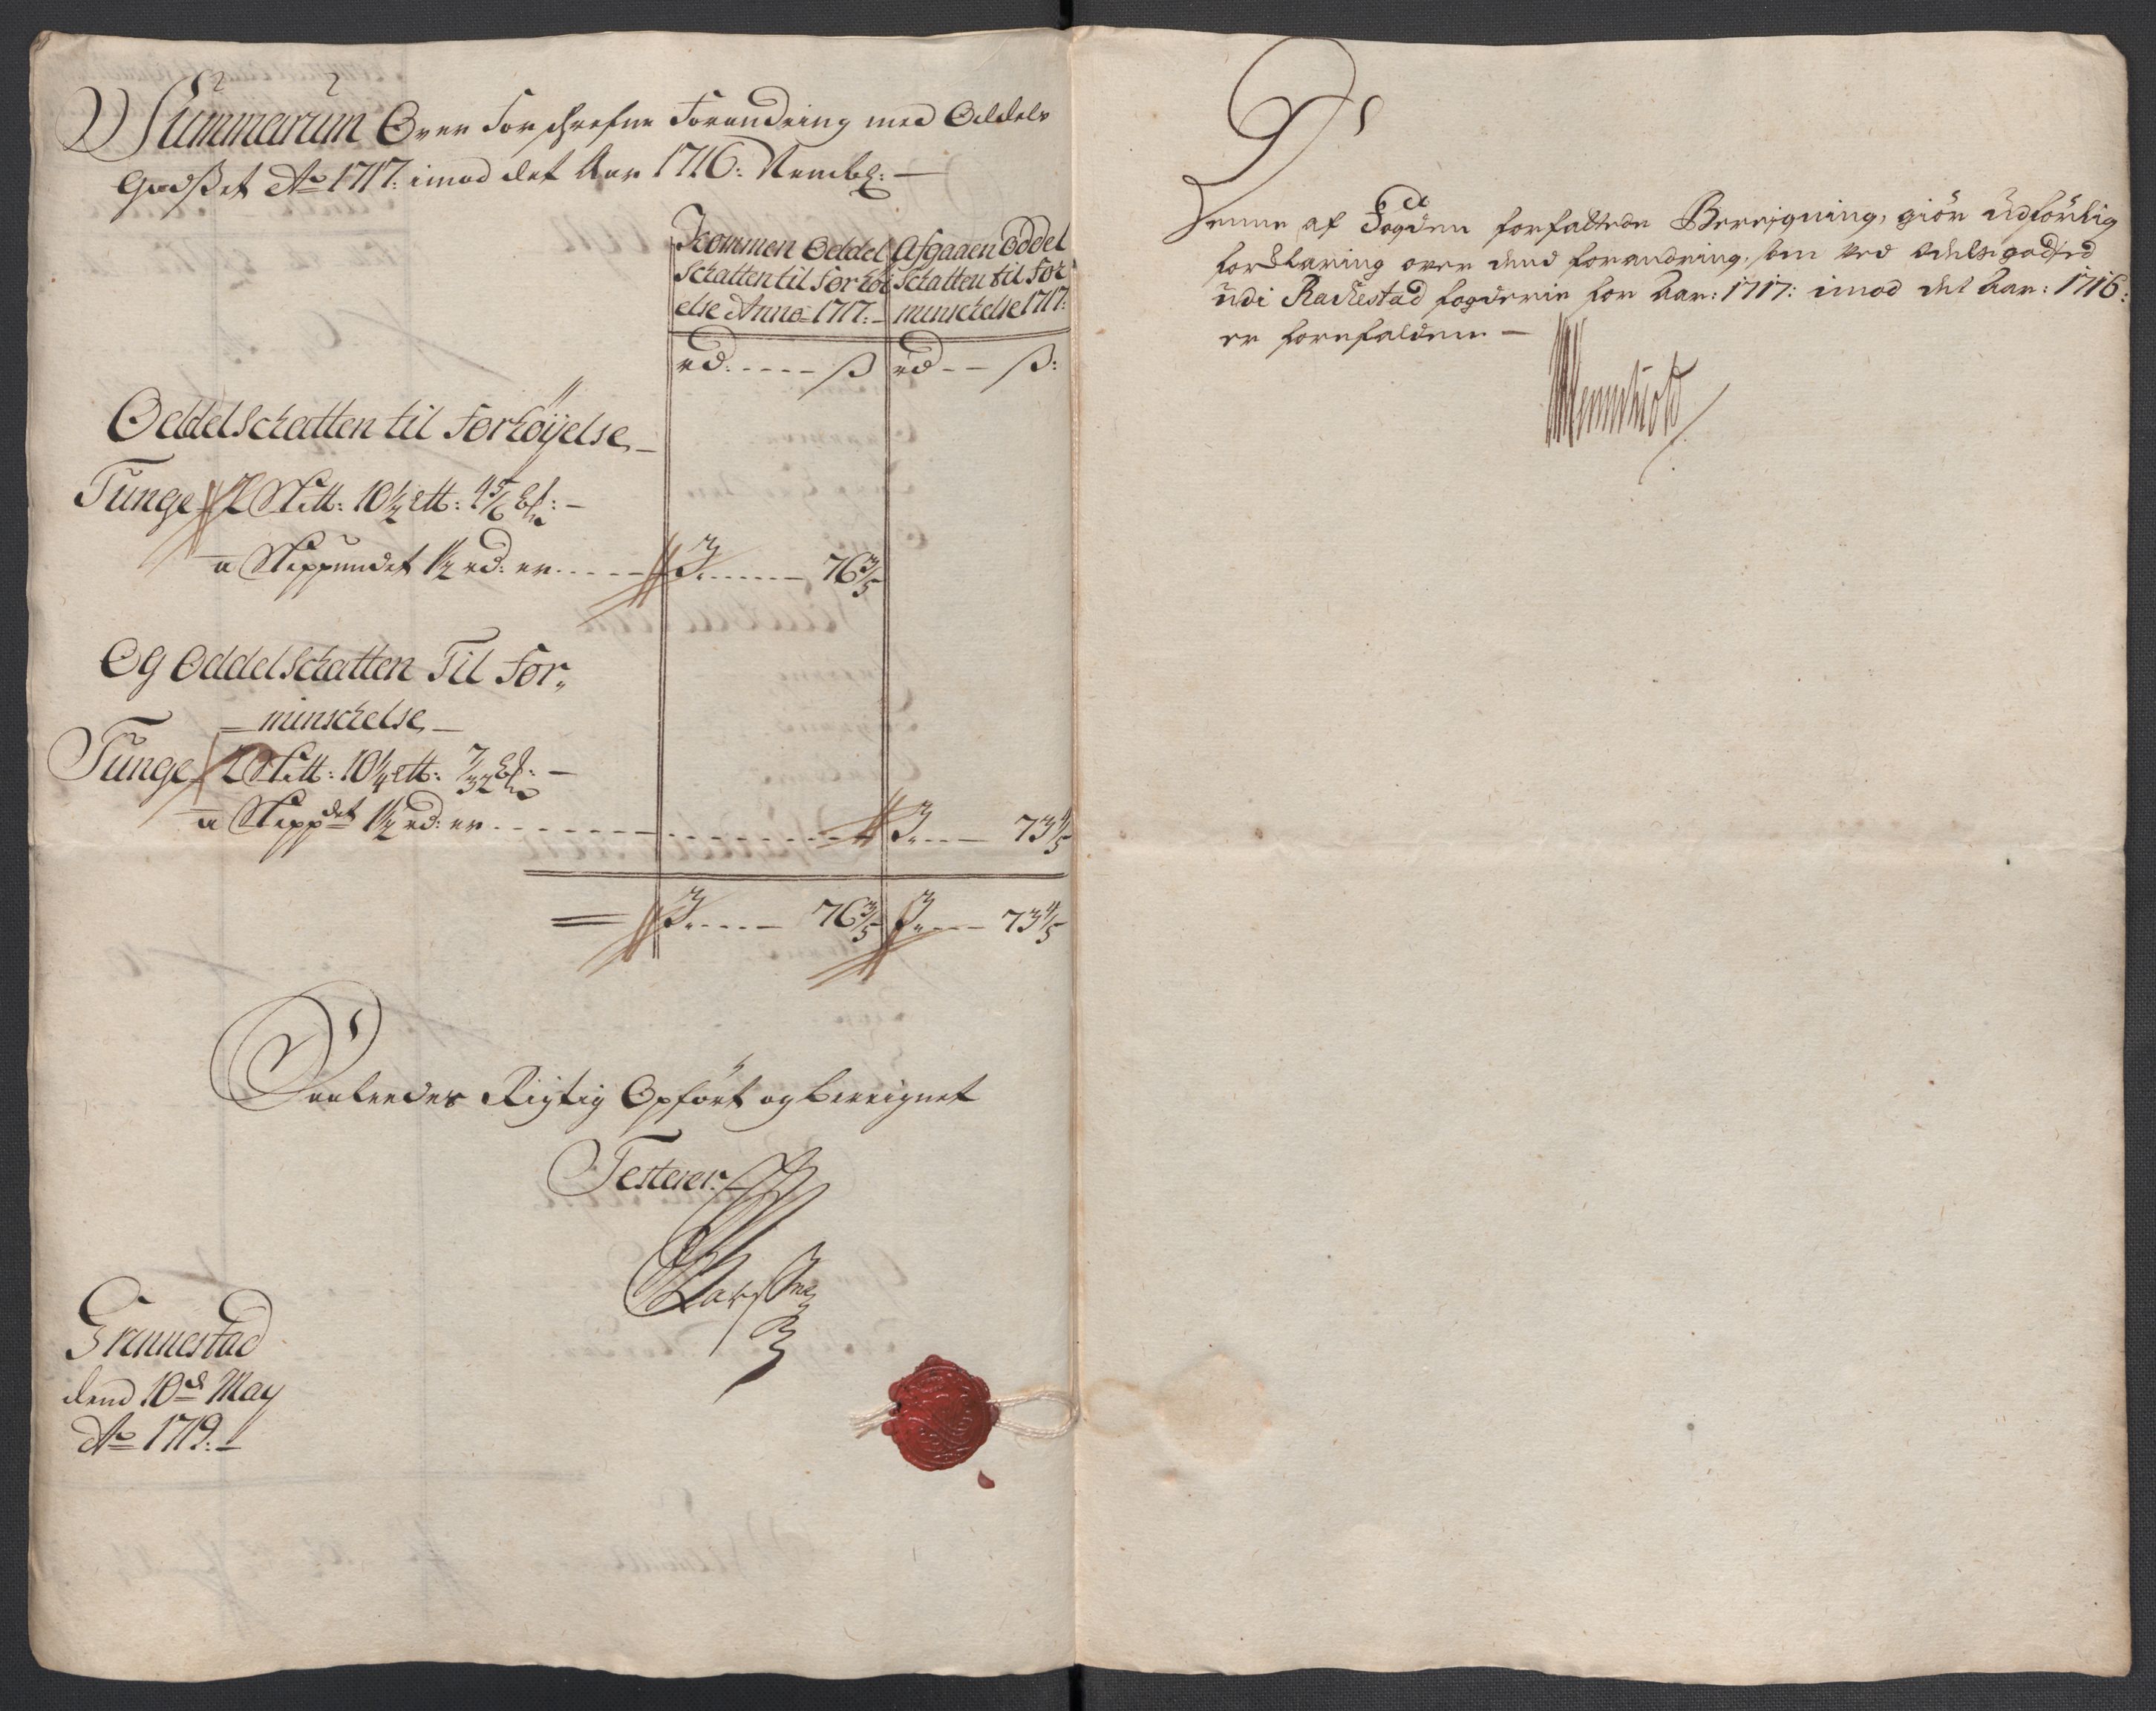 Summarum Over Forschrefne Forandring med Oddels
Godset Ao 1717: imod det Aar 1716: Nembl: —
Jkommen Oddel
Schatten til forhöi
else Anno 1717: —
Afgaaen Oddel
Schatten til for
minschelse 1717:
rd: ----- ß
rd -- ß:
Oddel Schatten til forhöyelse —
Tunge 2 Skitt: 10½ Ltt: 4 5/6
a Skippundet 1½ rd: er ..... 3 ...... 76 3/5
Og Oddel Schatten Til for„
minschelse —
Tunge 2 Skitt: 10¼ Ltt: 7/32
a Skippdet 1½ rd: er ........ 3 ---- 73 4/5
= 3 ----- 76 3/5 3 ---- 73 4/5
Saaleedes Rigtig Opfört og bereignet
Testerer
Grinnestad
dend 10de May
Ao 1719: —
Denne af Fogden forfattede Bereigning, giör udförlig
forklaring over dend forandring, som ved Odelsgodset
udi Rackestad fogderie for Aar: 1717: imod det Aar: 1716:
er forefalden —